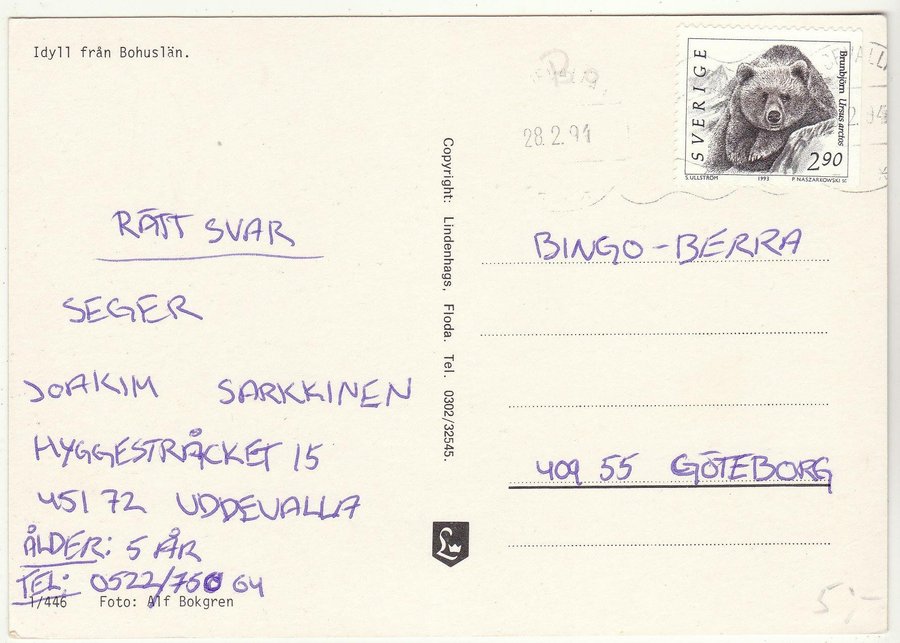 Idyll från Bohuslän.
RÄTT SVAR
SEGER
JOAKIM SARKKINEN
HYGGESTRÅCKET 15
451 72 UDDEVALLA
ÅLDER: 5 ÅR
TEL: 0522/750 64
1/446 Foto: Alf Bokgren
Copyright: Lindenhags, Floda. Tel. 0302/32545.
L
28.2.94
SVERIGE
Brunbjörn Ursus arctos
2.90
S. ULLSTRÖM 1993 P. NASZARKOWSKI SC
BINGO-BERRA
409 55 GÖTEBORG
5:-